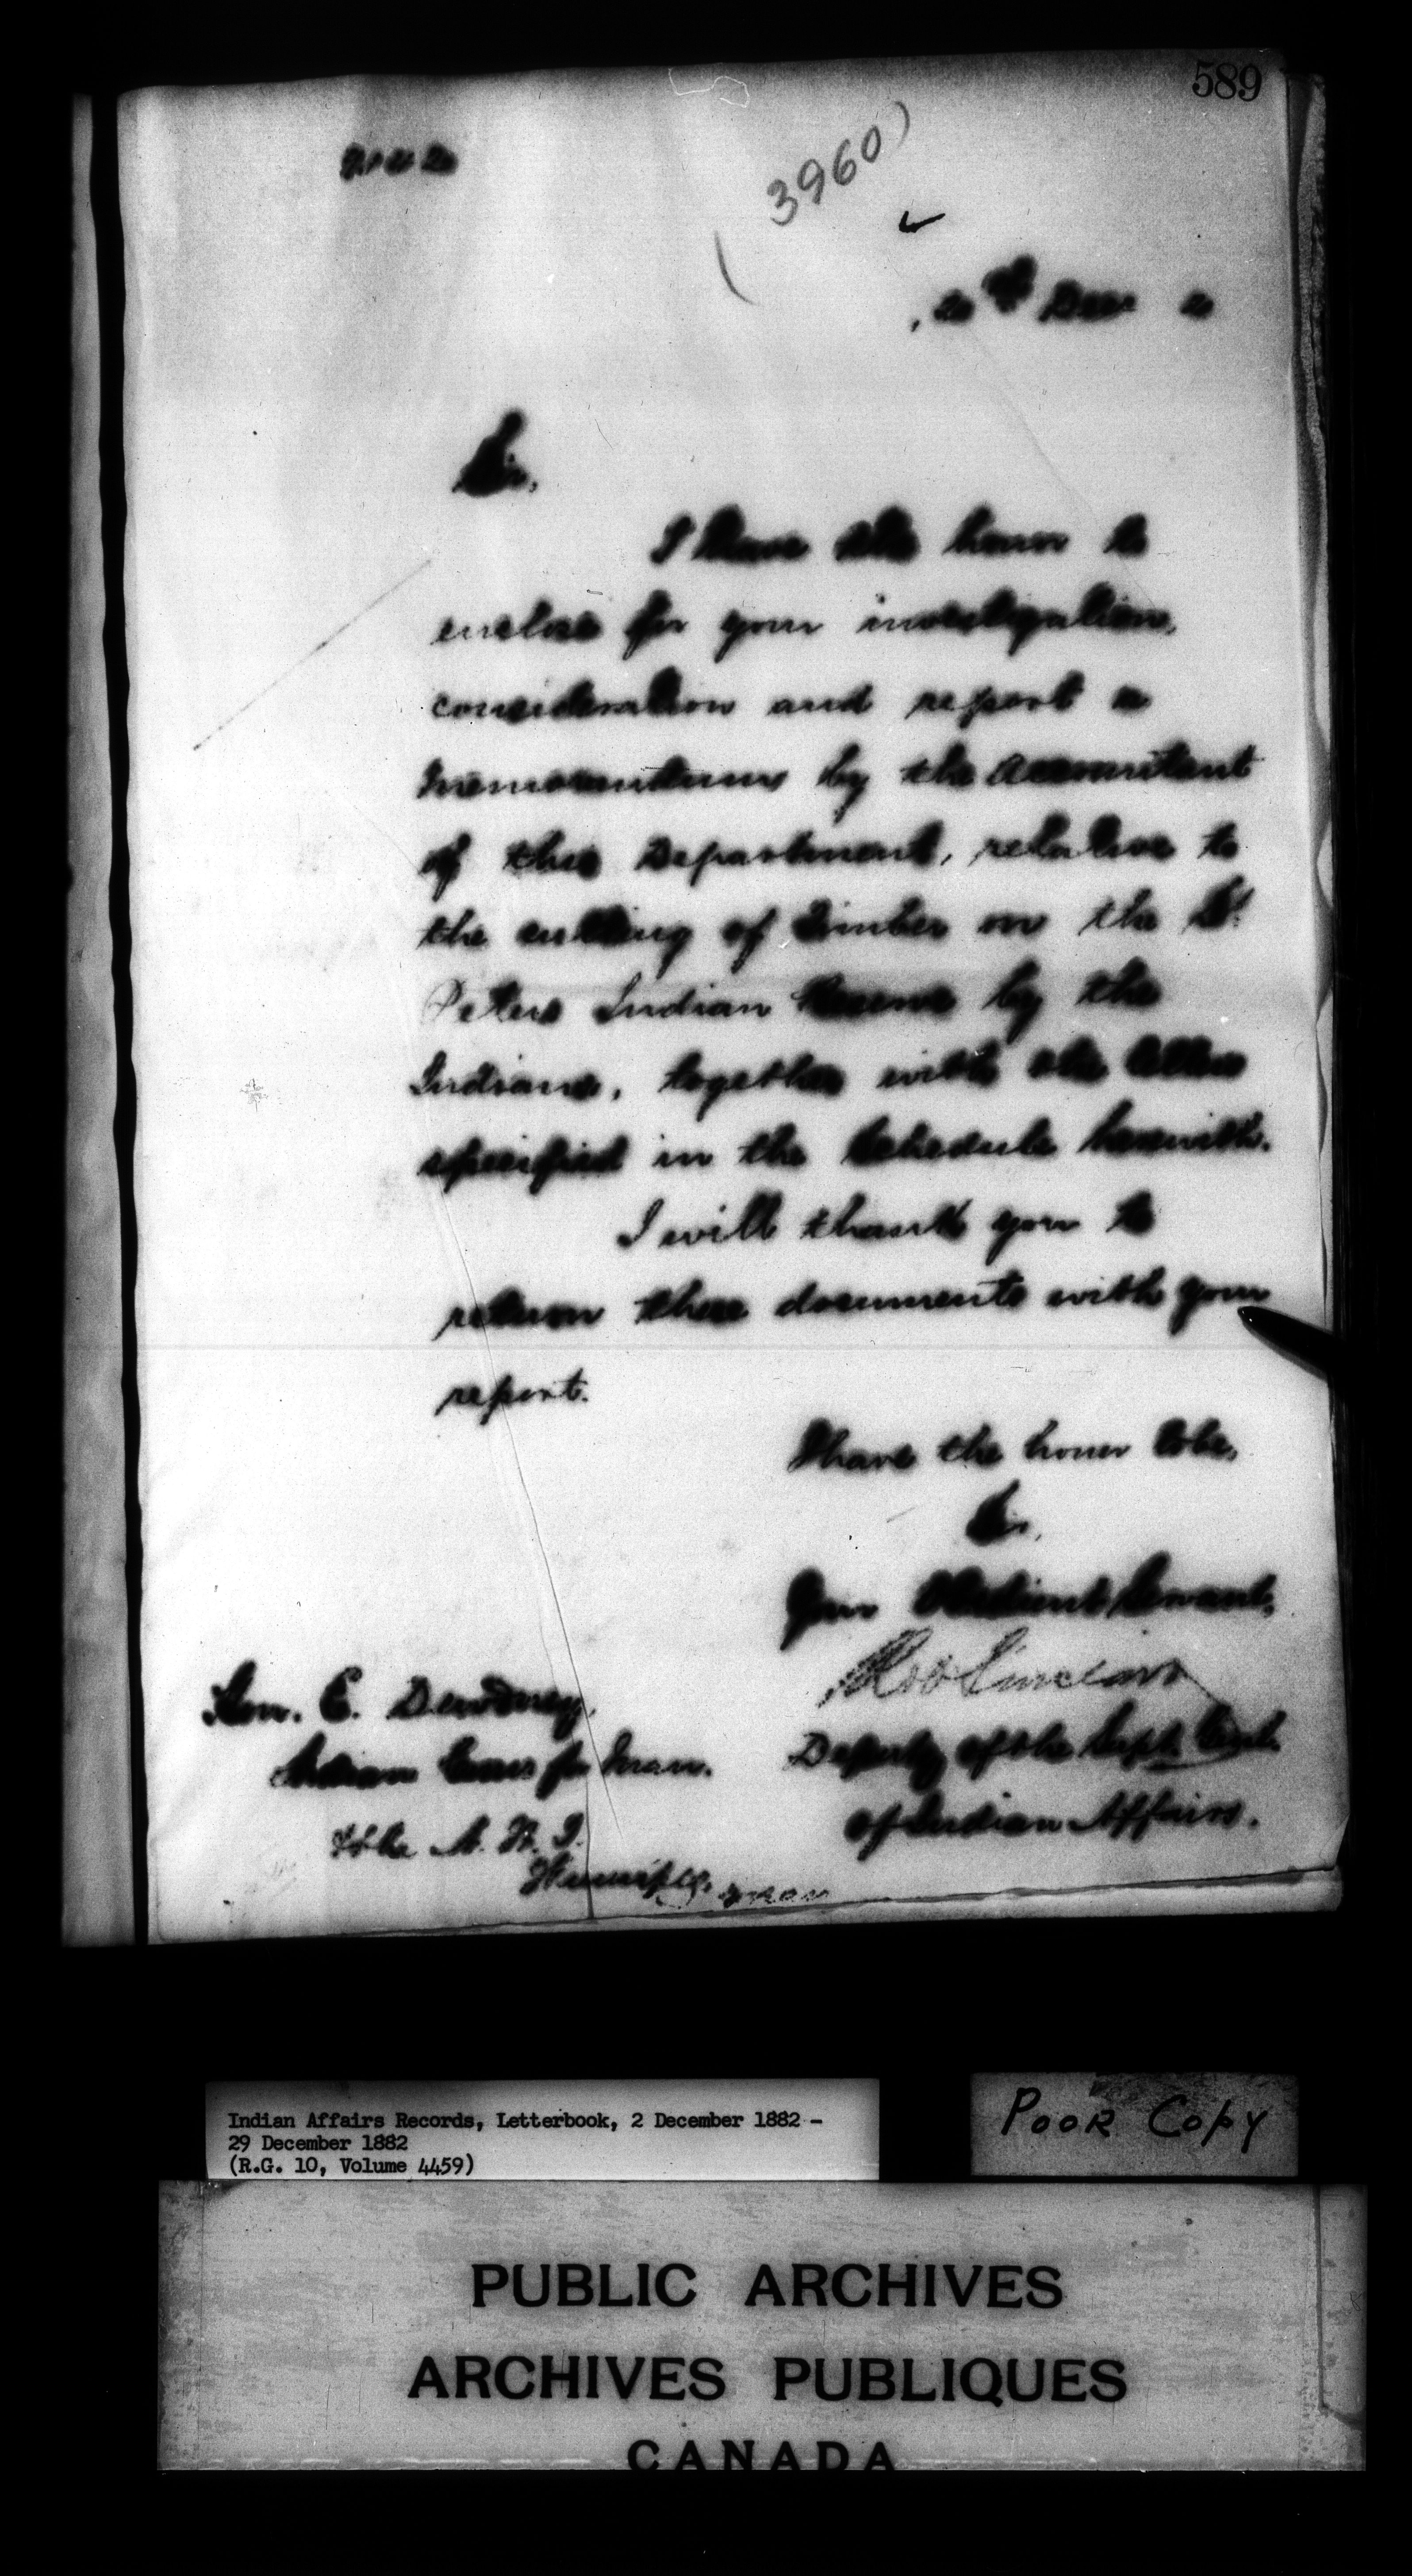 589
(3960)
th Dec
Sir,
I have the honor to
enclose for your investigation,
consideration and report a
memorandum by the Accountant
of this Department, relative to
the cutting of timber on the St.
Peters Indian Reserve by the
Indians, together with the letters
specified in the Schedule herewith.
I will thank you to
return these documents with your
report.
I have the honor to be,
Sir,
Your Obedient Servant,
Deputy of the Supt. Genl.
of Indian Affairs.
Hon. E. Dewdney,
Indian Comr for Man.
& the N. W. T.
Winnipeg, Man
Indian Affairs Records, Letterbook, 2 December 1882 -
29 December 1882
(R.G. 10, Volume 4459)
POOR COPY
PUBLIC ARCHIVES
ARCHIVES PUBLIQUES
CANADA